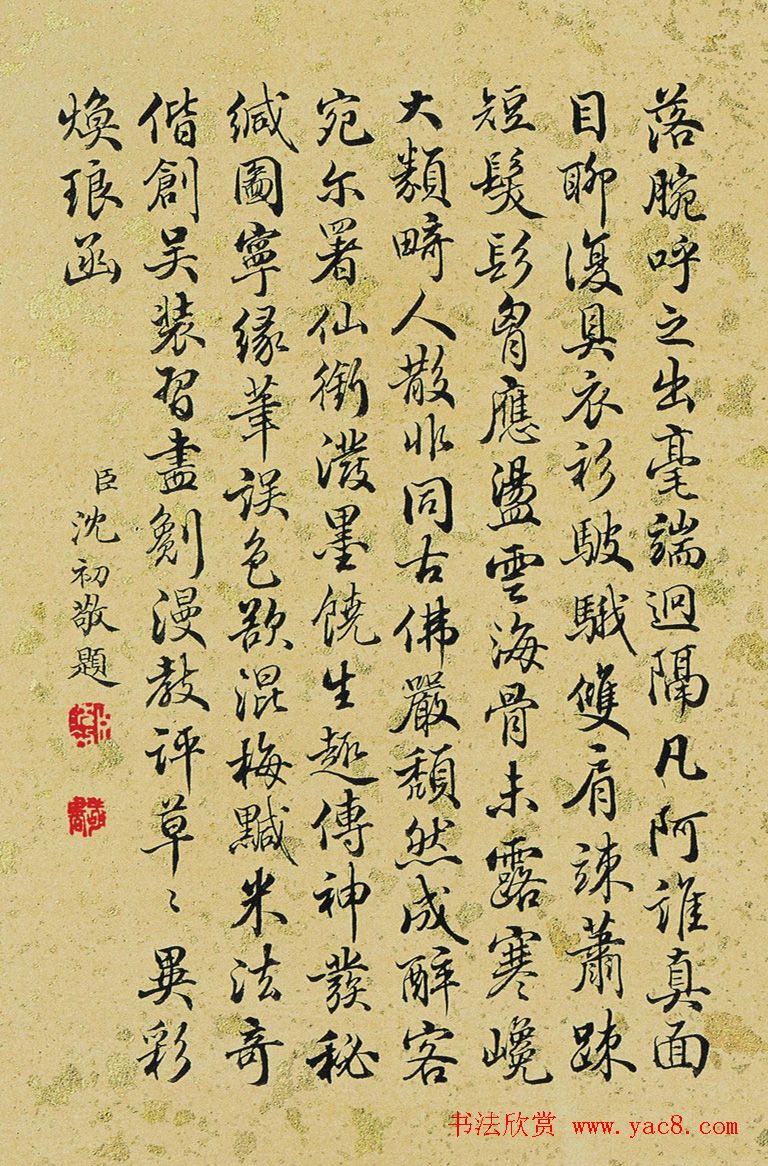 落腕呼之出毫端迥隔凡阿誰真面
目聊復具衣衫駊騀雙肩竦蕭疎
短髮髟胷應盪雲海骨未露寒巉
大類畸人散非同古佛嚴頹然成醉客
宛尔署仙銜潑墨饒生趣傳神發秘
緘圖寧緣筆誤色欲混梅黬米法奇
偕創吴裝習盡劖漫教評草〻異彩
煥琅函
臣沈初敬題
书法欣赏 www.yac8.com